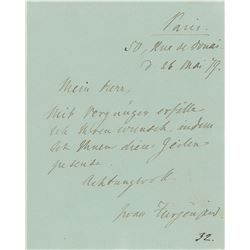 Paris.
50, Rue de Douai
d 26 Mai 79.
Mein Herr,
Mit Vergnügen erfülle
ich Ihren Wunsch, indem
ich Ihnen diese Zeilen
zusende.
Achtungsvoll
Iwan Turgénjew
32.